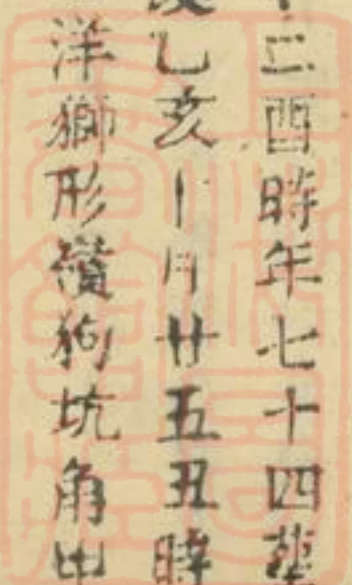 酉時年七十四葬
乙亥十月廿五丑時
洋獅形狗坑角